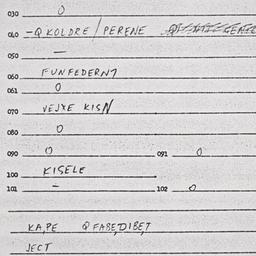 030 O
040 -Q KOLDRE / PERENE
050 —
060 FUNFEDERNT
061 O
070 VEJXE KISN
080 O
090 O 091 O
100 KISELE
101 - 102 O
KA,PE Q FABE,DIBE,T
JECT